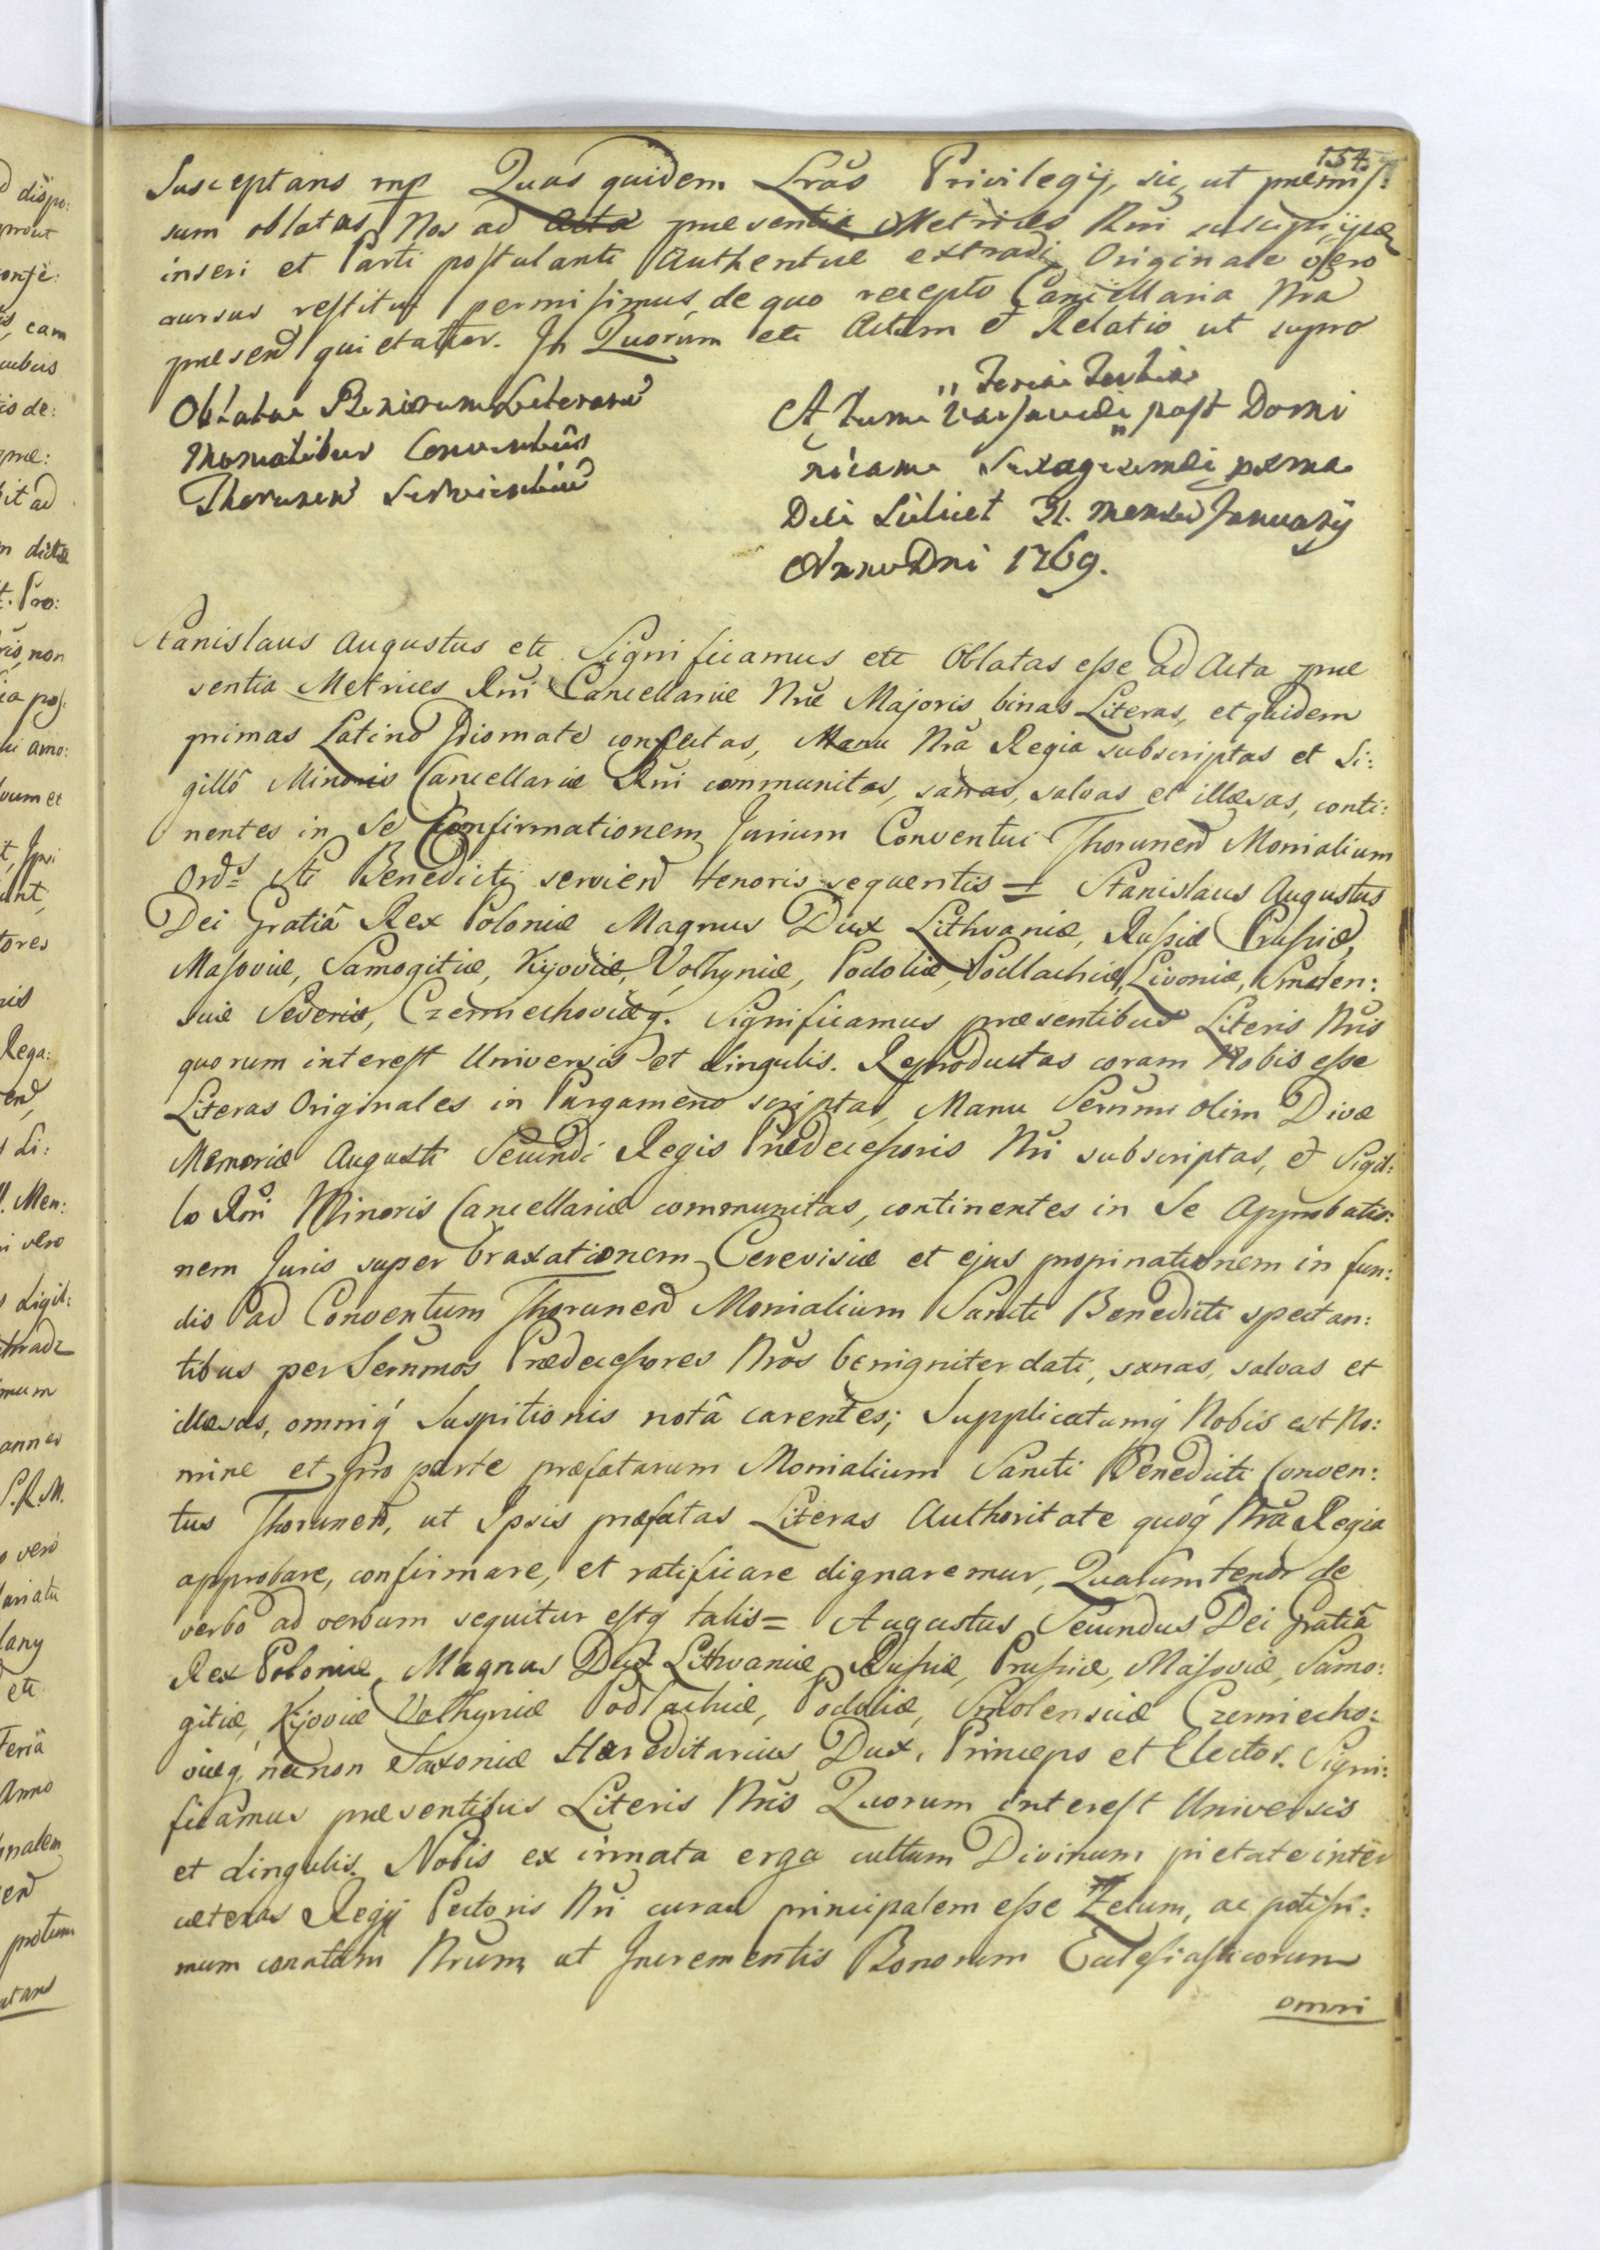 154.
Susceptans mp Quas quidem Lras Privilegij, sic, ut præmis:
sum oblatas Nos ad Acta præsentia Metrices Rni suscipi, ijsq
inseri et Parti postulanti Authentice extradi, Originale vero
rursus restitui permisimus, de quo recepto Cancellaria Nra
præsen quietatur. In Quorum etc Actum et Relatio ut supra
Oblata Binarum Literarum
Monialibus Conventus
Thorunen Servientium
Feria Tertia
Actum Varsaviæ post Domi
nicam Sexagesimæ proxima
Die Scilicet 31. mensis Januarij
Anno Dni 1769.
Stanislaus Augustus etc Significamus etc Oblatas esse ad Acta præ
sentia Metrices Rni Cancellariæ Nræ Majoris binas Literas, et quidem
primas Latino Idiomate confectas, Manu Nra Regia subscriptas et Si:
gillô Minoris Cancellariæ Rni communitas, sanas, salvas et illæsas, conti:
nentes in Se Confirmationem Jurium Conventui Thorunen Monialium
Ordis Sti Benedicti servien tenoris sequentis = Stanislaus Augustus
Dei Gratiâ Rex Poloniæ Magnus Dux Lithvaniæ, Russiæ Prussiæ,
Masoviæ, Samogitiæ, Kijoviæ, Volhyniæ, Podoliæ, Podlachiæ, Livoniæ, Smolen:
sciæ Severiæ, Czerniechoviæq. Significamus præsentibus Literis Nris
quorum interest Universis et singulis. Reproductas coram Nobis esse
Literas Originales in Pargameno scriptas, Manu Sermi olim Divæ
Memoriæ Augusti Secundi Regis Prædecessoris Nri subscriptas, et Sigil:
lo Rni Minoris Cancellariæ communitas, continentes in Se Approbatio:
nem Juris super braxationem Cerevisiæ et ejus propinationem in fun:
dis ad Conventum Thorunen Monialium Sancti Benedicti spectan:
tibus per Sermmos Prædecessores Nros benigniter dati, sanas, salvas et
illæsas, omniq suspitionis notâ carentes; Supplicatumq Nobis est No:
mine et pro parte præfatarum Monialium Sancti Benedicti Conven:
tus Thorunen, ut Ipsis præfatas Literas Authoritate quoq Nra Regia
approbare, confirmare, et ratificare dignaremur, Quarum tenor de
verbo ad verbum sequitur estq talis = Augustus Secundus Dei Gratiâ
Rex Poloniæ, Magnus Dux Lithvaniæ, Russiæ, Prussiæ, Masoviæ, Samo:
gitiæ, Kijoviæ Volhyniæ Podlachiæ, Podoliæ, Smolensciæ Czerniecho:
viæq, necnon Saxoniæ Hæreditarius Dux, Princeps et Elector. Signi:
ficamus præsentibus Literis Nris Quorum interest Universis
et singulis. Nobis ex innata erga cultum Divinum pietate inter
cæteras Regij Pectoris Nri curas principalem esse Zelum, ac potissi:
mum conatum Nrum, ut Incrementis Bonorum Ecclesiasticorum
omni